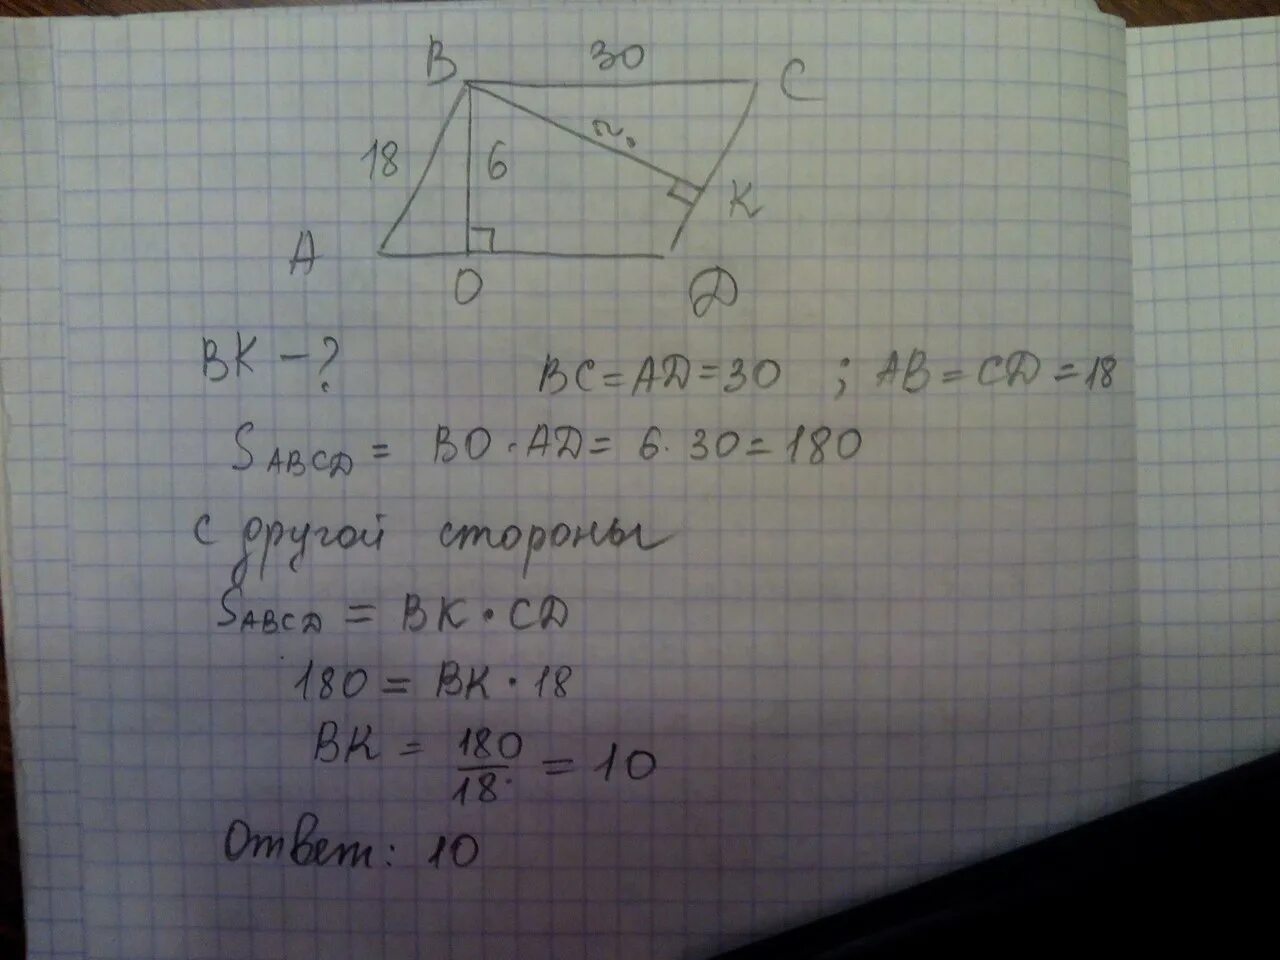 B 30 C
18 6 ?
K
A O D
BK - ? BC = AD = 30 ; AB = CD = 18
S ABCD = BO · AD = 6 · 30 = 180
с другой стороны
S ABCD = BK · CD
180 = BK · 18
BK = 180/18 = 10
Ответ: 10